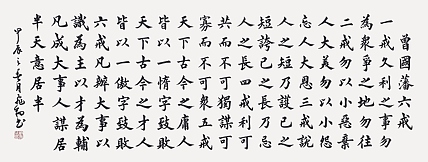 曾國藩六戒
一戒久利之事勿
為衆爭之地勿往
二戒勿以小惡棄
人大美勿以小怨
忘人大恩三戒說
人之短乃護己之
短誇己之長乃忌
人之長四戒利可
共而不可獨謀可
寡而不可衆五戒
天下古今之庸人
皆以一惰字致敗
天下古今之才人
皆以一傲字致敗
六戒凡辦大事以
識為主以才為輔
凡成大事人謀居
半天意居半
甲辰之春月